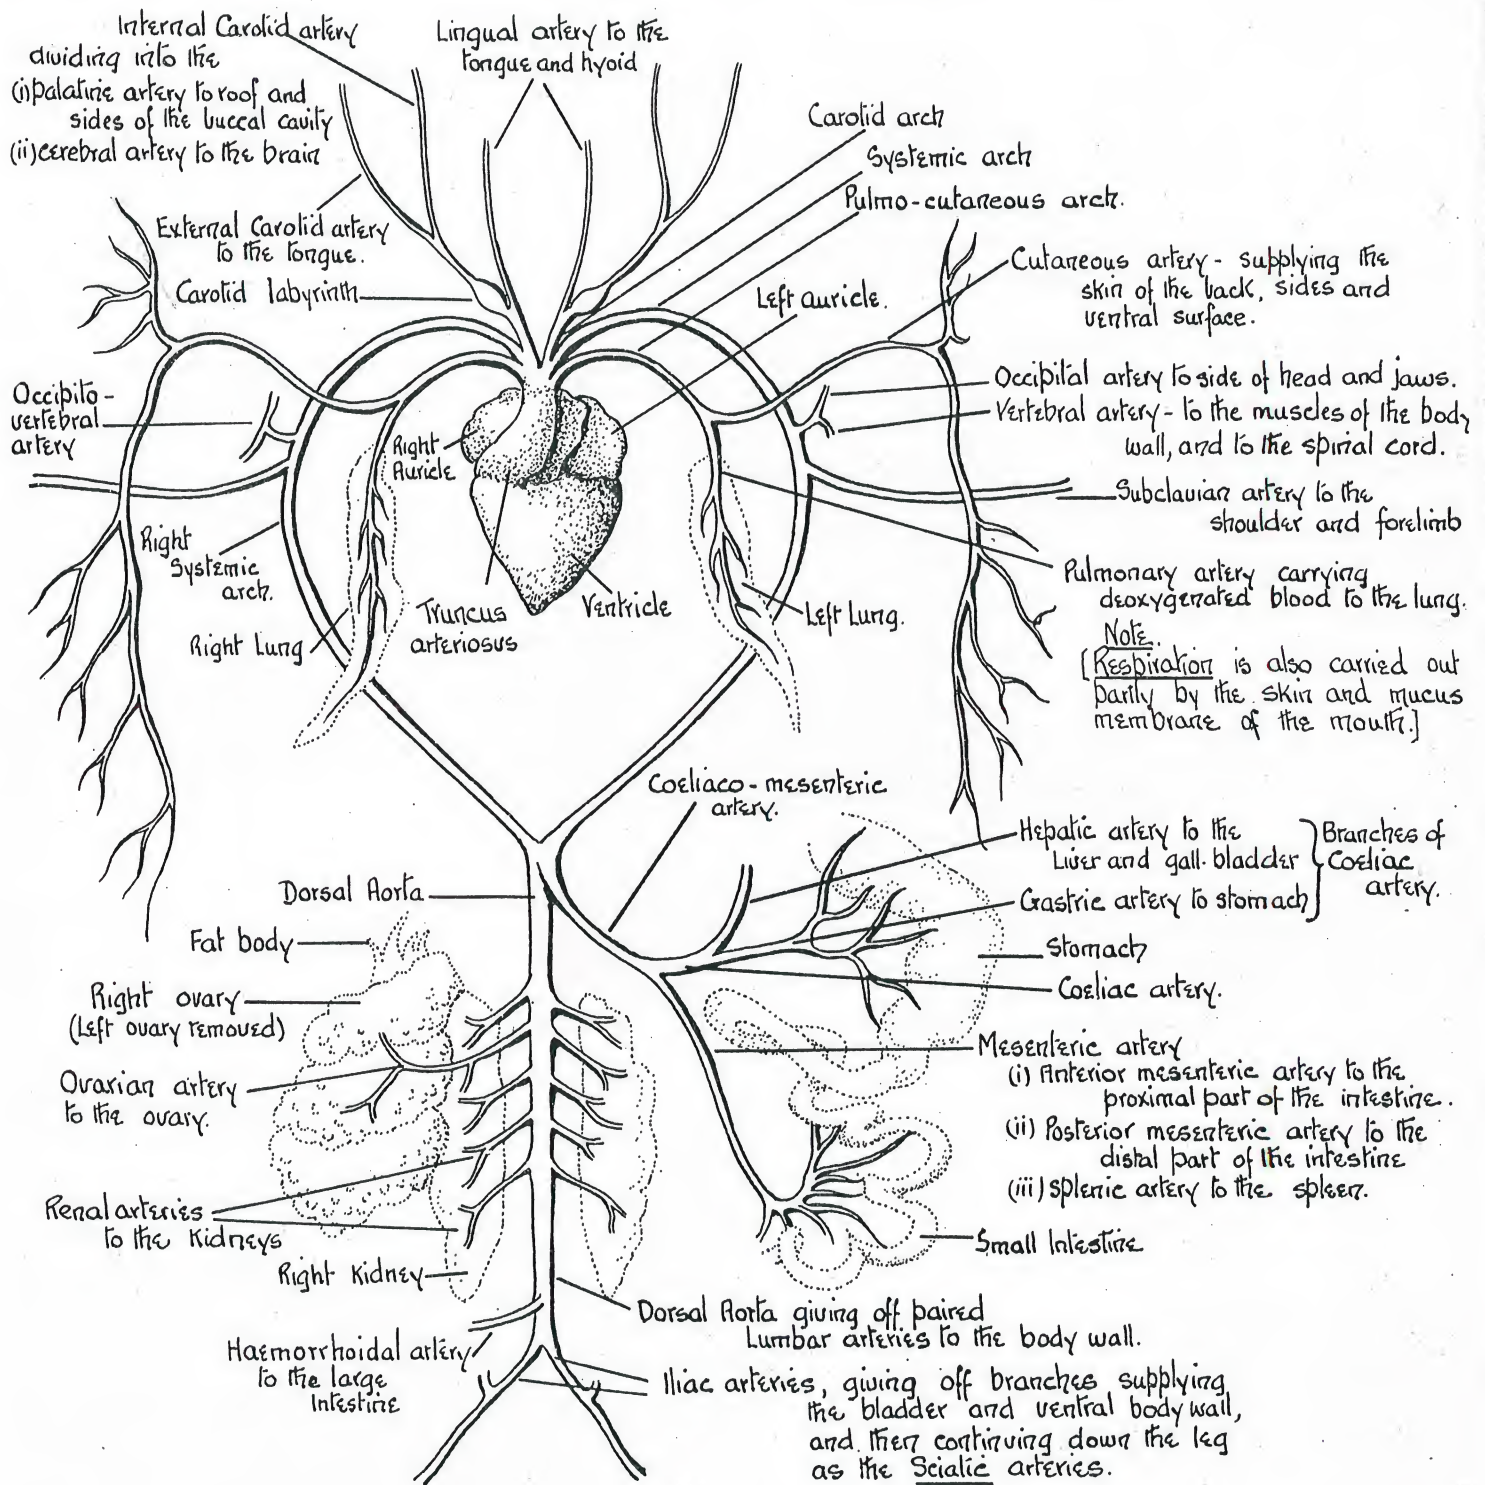 Internal Carotid artery
dividing into the
(i) palatine artery to roof and
sides of the buccal cavity
(ii) cerebral artery to the brain
Lingual artery to the
tongue and hyoid
Carotid arch
Systemic arch
Pulmo-cutaneous arch.
External Carotid artery
to the tongue.
Carotid labyrinth
Left auricle.
Cutaneous artery - supplying the
skin of the back, sides and
ventral surface.
Occipito-
vertebral
artery
Right
Auricle
Occipital artery to side of head and jaws.
Vertebral artery - to the muscles of the body
wall, and to the spinal cord.
Subclavian artery to the
shoulder and forelimb
Right
Systemic
arch.
Right Lung
Truncus
arteriosus
Ventricle
Left Lung.
Pulmonary artery carrying
deoxygenated blood to the lung.
Note.
[Respiration is also carried out
partly by the skin and mucus
membrane of the mouth.]
Coeliaco-mesenteric
artery.
Hepatic artery to the
Liver and gall-bladder
Gastric artery to stomach
Branches of
Coeliac
artery.
Dorsal Aorta
Fat body
Stomach
Right ovary
(Left ovary removed)
Coeliac artery.
Ovarian artery
to the ovary.
Mesenteric artery
(i) Anterior mesenteric artery to the
proximal part of the intestine.
(ii) Posterior mesenteric artery to the
distal part of the intestine
(iii) splenic artery to the spleen.
Renal arteries
to the Kidneys
Small Intestine
Right Kidney
Dorsal Aorta giving off paired
Lumbar arteries to the body wall.
Haemorrhoidal artery
to the large
Intestine
Iliac arteries, giving off branches supplying
the bladder and ventral body wall,
and then continuing down the leg
as the Sciatic arteries.